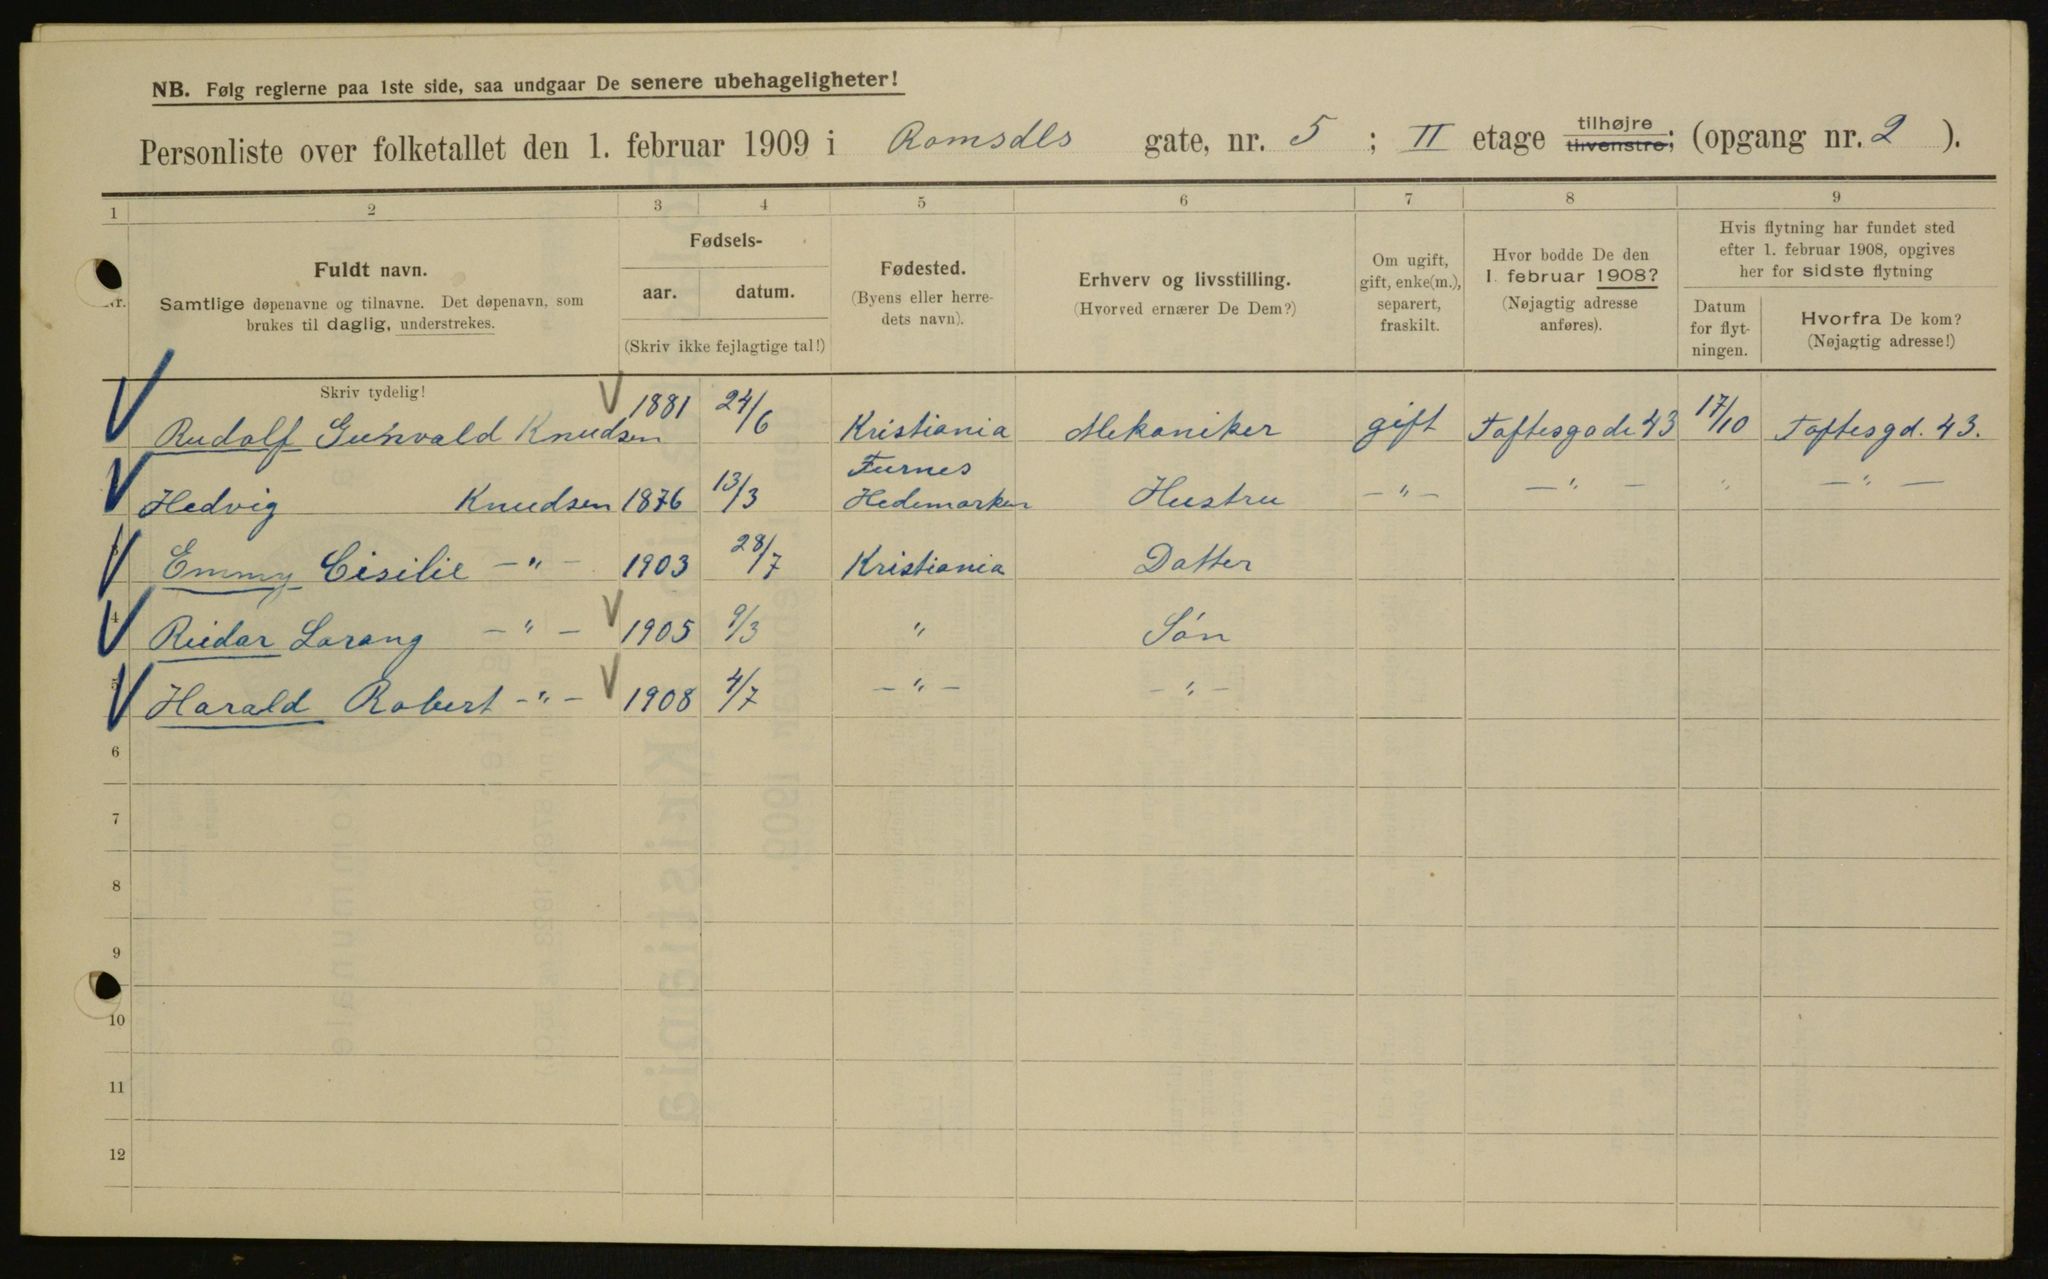 NB. Følg reglerne paa 1ste side, saa undgaar De senere ubehageligheter!
Personliste over folketallet den 1. februar 1909 i Romsdls gate, nr. 5 ; II etage tilhøjre tilvenstre; (opgang nr. 2 ).
1 2 3 4 5 6 7 8 9
Nr.
Fuldt navn.
Samtlige døpenavne og tilnavne. Det døpenavn, som
brukes til daglig, understrekes.
Fødsels-
aar. datum.
(Skriv ikke fejlagtige tal!)
Fødested.
(Byens eller herre-
dets navn).
Erhverv og livsstilling.
(Hvorved ernærer De Dem?)
Om ugift,
gift, enke(m.),
separert,
fraskilt.
Hvor bodde De den
1. februar 1908?
(Nøjagtig adresse
anføres).
Hvis flytning har fundet sted
efter 1. februar 1908, opgives
her for sidste flytning
Datum
for flyt-
ningen.
Hvorfra De kom?
(Nøjagtig adresse!)
Skriv tydelig!
Rudolf Gunvald Knudsen 1881 24/6 Kristiania Mekaniker gift Toftesgade 43 17/10 Toftesgd. 43.
Hedvig Knudsen 1876 13/3 Furnes Hedemarken Hustru -"- -"- " -"-
3 Emmy Cisilie -"- 1903 28/7 Kristiania Datter
4 Reidar Lorang -"- 1905 9/3 " Søn
5 Harald Robert -"- 1908 4/7 -"- -"-
6
7
8
9
10
11
12